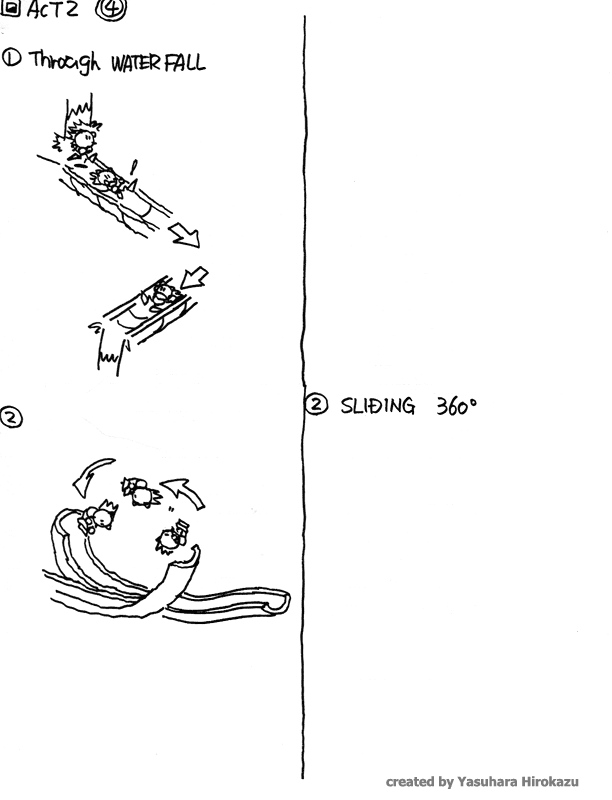 ACT2 ④
① Through WATER FALL
②
② SLIDING 360°
created by Yasuhara Hirokazu